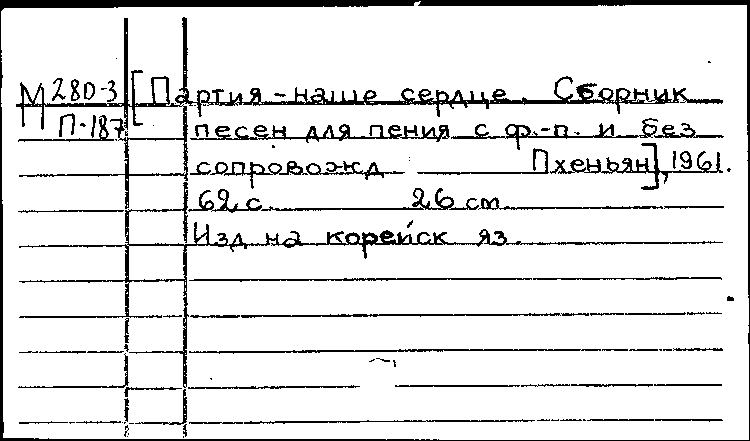 М 280-3 [Партия - наше сердце. Сборник
П-187 песен для пения с ф.-п. и без
сопровожд Пхеньян], 1961.
62 с. 26 см.
Изд на корейск яз.